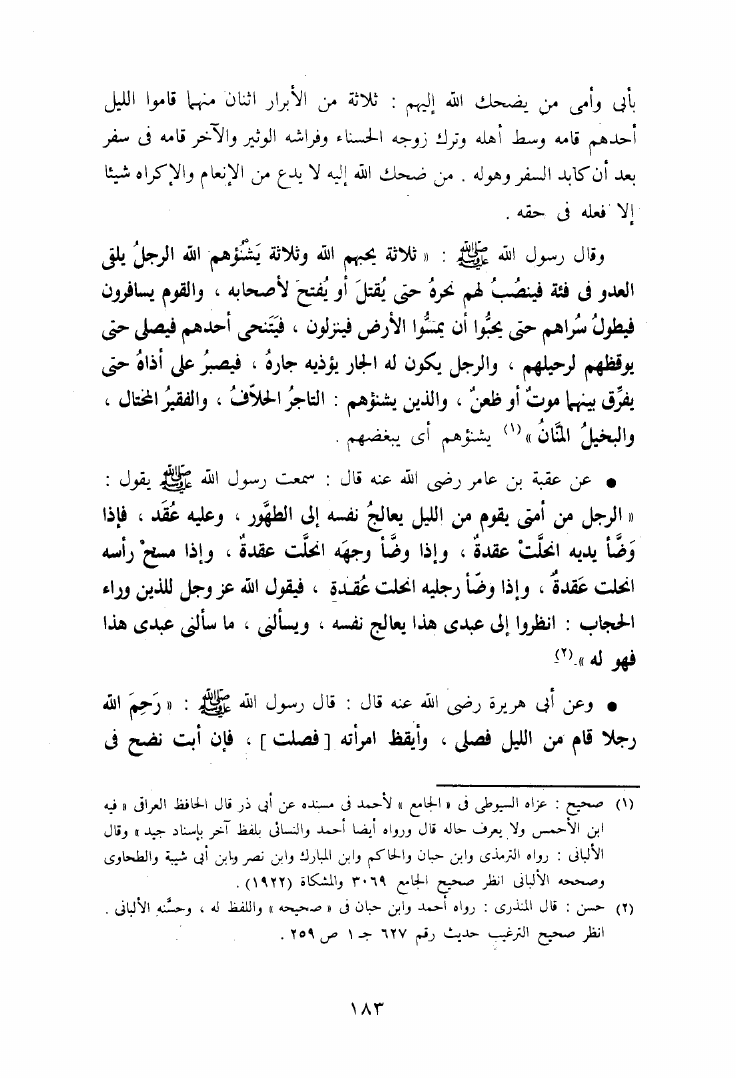 بأبى وأمى من يضحك الله إليهم : ثلاثة من الأبرار اثنان منهما قاموا الليل
أحدهم قامه وسط أهله وترك زوجه الحسناء وفراشه الوثير والآخر قامه فى سفر
بعد أن كابد السفر وهوله . من ضحك الله إليه لا يدع من الإنعام والإكراه شيئا
إلا فعله فى حقه .
وقال رسول الله ﷺ : « ثلاثة يحبهم الله وثلاثة يَشْنُؤهم الله الرجلُ يلقى
العدو فى فئة فينصُبُ لهم نحرهُ حتى يُقتلَ أو يُفتحَ لأصحابه ، والقوم يسافرون
فيطولُ سُراهم حتى يحبُّوا أن يمسُّوا الأرض فينزلون ، فيَتنحى أحدهم فيصلى حتى
يوقظهم لرحيلهم ، والرجل يكون له الجار يؤذيه جارهُ ، فيصبرُ على أذاهُ حتى
يفرِّق بينهما موتٌ أو ظعنٌ ، والذين يشنؤهم : التاجرُ الحلاّفُ ، والفقيرُ المختال ،
والبخيلُ المَّنانُ »(١) يشنؤهم أى يبغضهم .
● عن عقبة بن عامر رضى الله عنه قال : سمعت رسول الله ﷺ يقول :
« الرجل من أمتى يقوم من الليل يعالجُ نفسه إلى الطهَّور ، وعليه عُقَد ، فإذا
وَضَّأ يديه انحلَّتْ عقدةٌ ، وإذا وضَّأ وجهَه انحلَّت عقدةٌ ، وإذا مسحْ رأسه
انحلت عَقدةٌ ، وإذا وضّأ رجليه انحلت عُقـدة ، فيقول الله عز وجل للذين وراء
الحجاب : انظروا إلى عبدى هذا يعالج نفسه ، ويسألنى ، ما سألنى عبدى هذا
فهو له » .(٢)
● وعن أبى هريرة رضى الله عنه قال : قال رسول الله ﷺ : « رَحِمَ الله
رجلا قام من الليل فصلى ، وأيقظ امرأته [ فصلت ] ، فإن أبت نضح فى
(١) صحيح : عزاه السيوطى فى « الجامع » لأحمد فى مسنده عن أبى ذر قال الحافظ العراقى « فيه
ابن الأحمس ولا يعرف حاله قال ورواه أيضا أحمد والنسائى بلفظ آخر بإسناد جيد » وقال
الألبانى : رواه الترمذى وابن حبان والحاكم وابن المبارك وابن نصر وابن أبى شيبة والطحاوى
وصححه الألبانى انظر صحيح الجامع ٣٠٦٩ والمشكاة (١٩٢٢) .
(٢) حسن : قال المنذرى : رواه أحمد وابن حبان فى « صحيحه » واللفظ له ، وحسَّنه الألبانى .
انظر صحيح الترغيب حديث رقم ٦٢٧ جـ ١ ص ٢٥٩ .
١٨٣